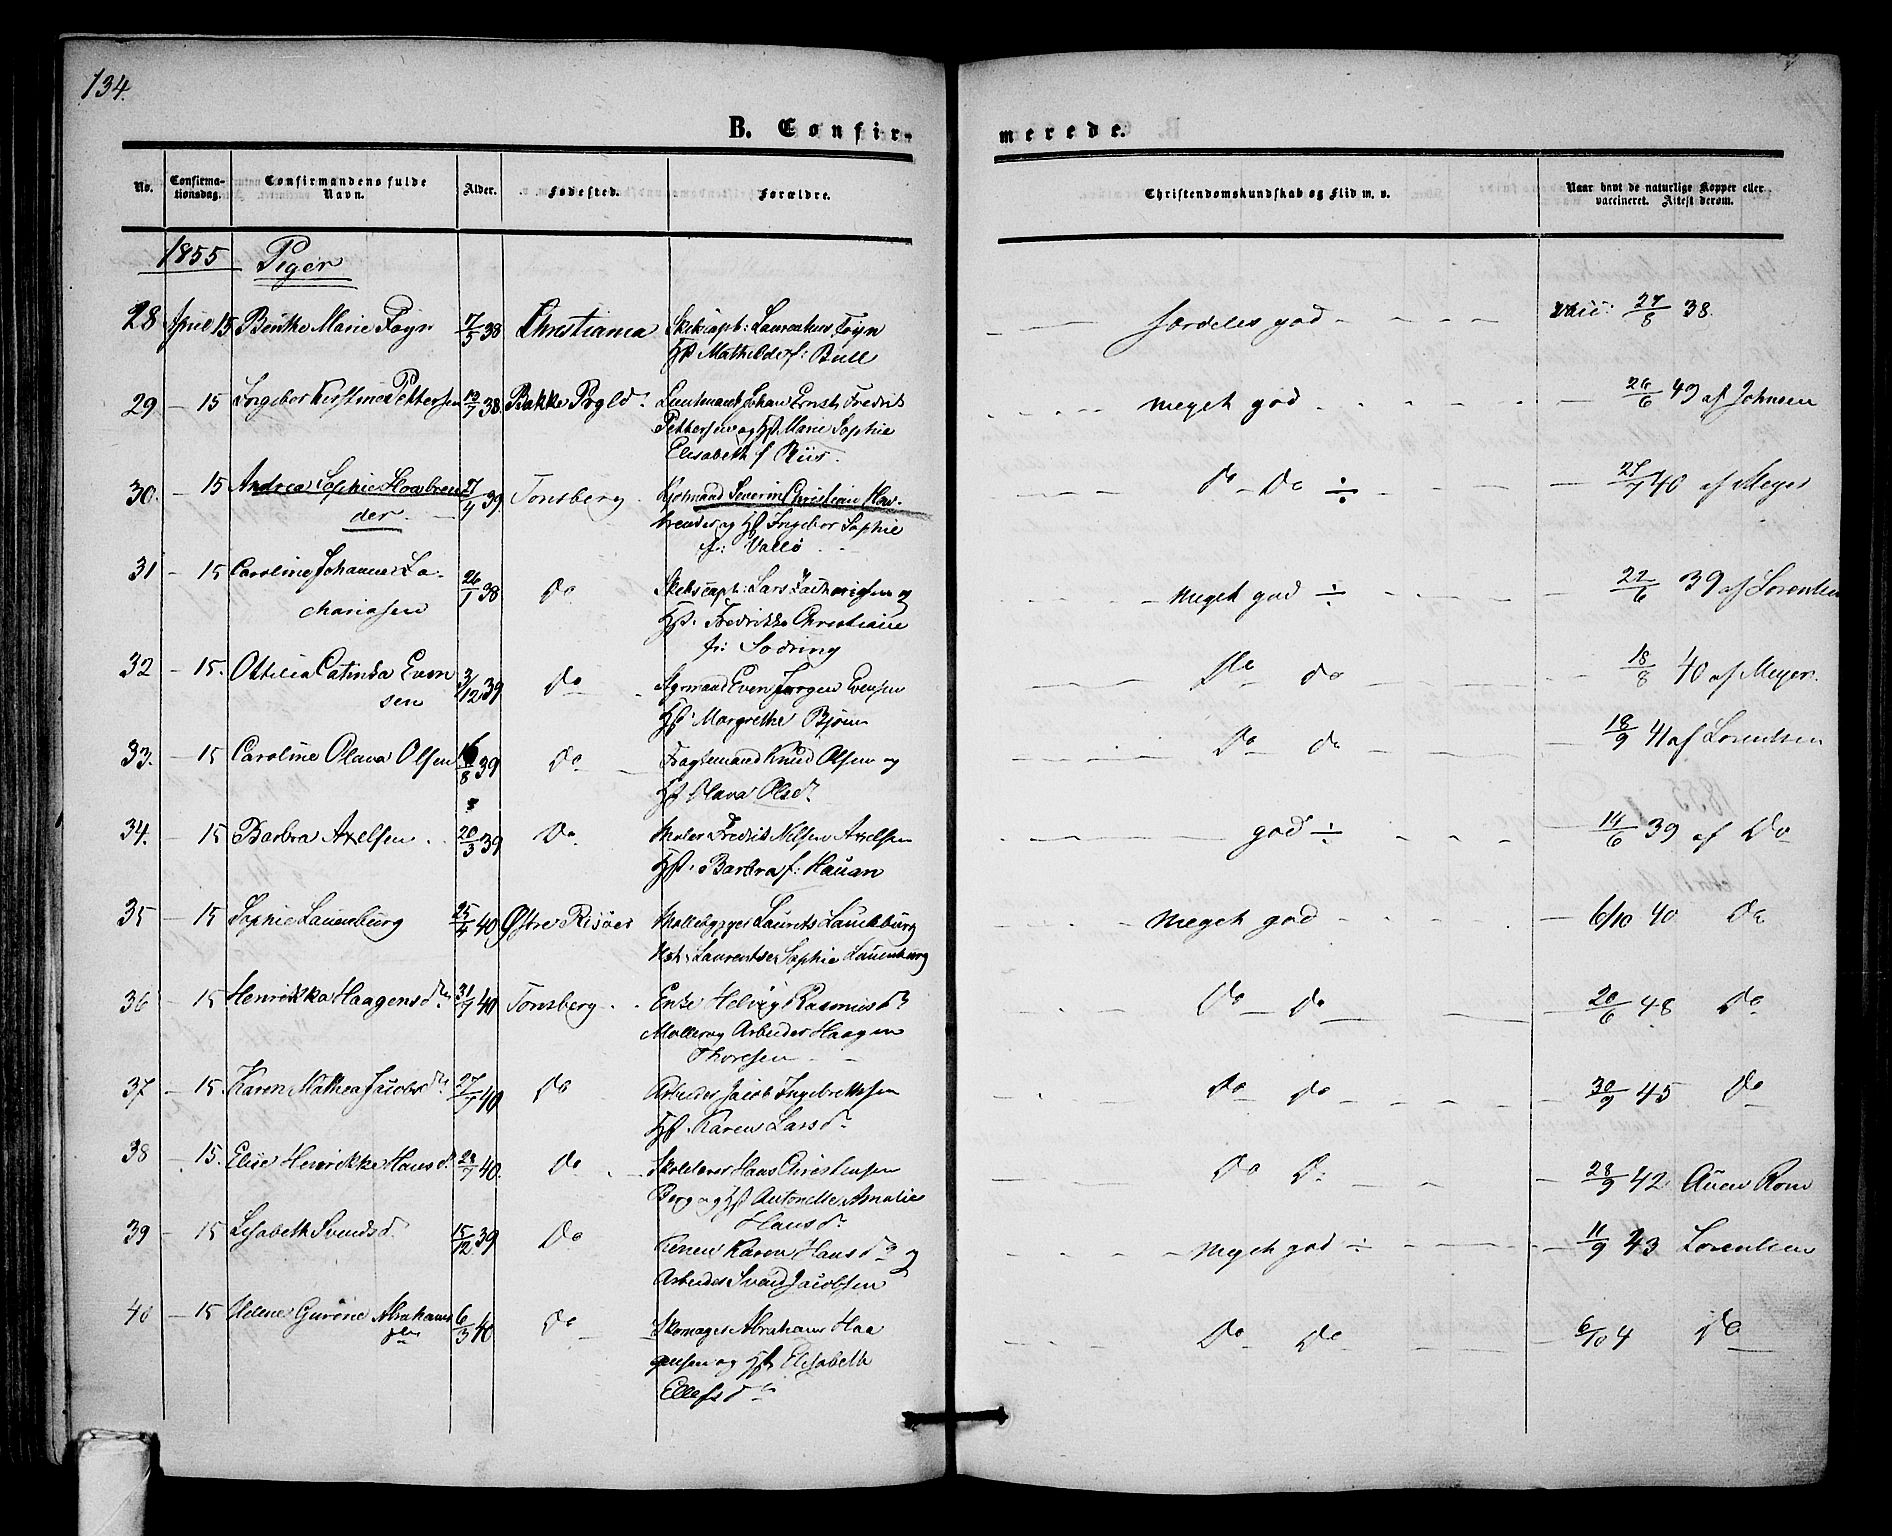 134.
B. Confir-
merede.
No.
Confirma-
tionsdag.
Confirmandens fulde
Navn.
Alder.
Fødested.
Forældre.
Christendomskundskab og Flid m. v.
Naar havt de naturlige Kopper eller
vaccineret. Attest derom.
1855 Piger
28 April 15 Benthe Marie Foyn 7/5 38 Christiania Skibscapt: Laurentius Foyn særdeles god vacc: 27/8 38.
Hst Mathilde f: Bull
29 — 15 Ingebor Kirstine Pettersen 19/7 38 Bakke Lieutenant Johan Ernst Fredrik meget god 26/6 43 af Johnsen
Pettersen og Hst Marie Sophie
Elisabeth f Riis.
30. — 15 Andrea Sophie Havbren 27/4 39 Tonsberg Kjobmand Severin Christian Hav- Do Do ÷ 27/7 40 af Meyer
der. brender og Hst Ingebor Sophie
f: Vallö
31 — 15 Caroline Johanne Za- 26/1 38 Do Skibscapt: Lars Zachariasen og meget god ÷ 22/6 39 af Lorentsen
chariasen Hst. Fredrikke Christiane
f: Sodring
32 — 15. Ottilia Catinka Even 3/12 39 Do Even Jørgen Evensen Do do 18/8 40 af Meyer.
sen Hst Margrethe Bjørn
33. — 15 Caroline Olava Olsen 16/8 39 Do Fragtemand Knud Olsen og Do do 18/9 41 af Lorentsen
Hst Olava Olsdr
34. — 15 Barbra Axelsen 20/3 39 Do Maler Fredrik Nilsen Axelsen god ÷ 14/6 39 af Do
Hst. Barbra f: Hauan
35 — 15 Sophie Lauenburg 25/4 40 Østre Risøer Møllebygger Laurets Lauenburg meget god 6/10 40 Do
Hst: Laurentse Sophie Lauenburg
36 — 15 Henrikka Haagensdr 31/7 40 Tonsberg Enke Helvig Rasmusdr Do Do 20/6 48 Do
Møller og Arbeider Haagen
Thoresen
37 — 15 Karen Mathea Jacobsdr 27/7 40 Do Arbeider Jacob Ingebrethsen Do do 30/9 45 Do
Hst Karen Larsdr
38 — 15. Elise Henrikke Hansdr 28/7 40. Do Skolelærer Hans Christensen Do Do 28/9 42
Berg og Hst Antonette Amalie
Hansdr
39 — 15 Lisabeth Svendsdr 15/12 39 Do Karen Hansdr og meget god ÷ 11/9 43 Lorentsen
Arbeider Svend Jacobsen
40 — 15 Helene Gurine Abrahams 6/3 40 Do Skomager Abraham Haa Do Do 6/10 4 Do
dtr gensen og Hst Elisabeth
Ellefsdr